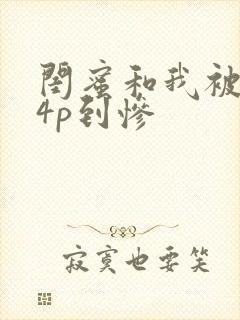 闺蜜和我被
4p到惨
寂寞也要笑